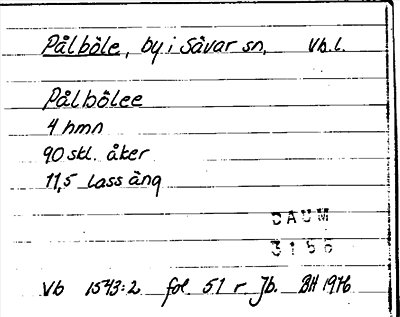 Pålböle, by i Sävar sn, Vb.l.
Pålbölee
4 hmn
90 skl. åker
11,5 lass äng
DAUM
3156
Vb 1543:2 fol. 51 r Jb. BH 1976